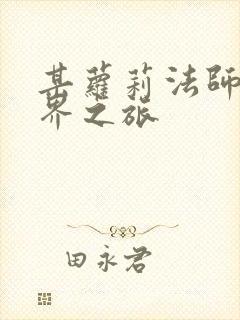 某蘿莉法師
界之旅
田永君